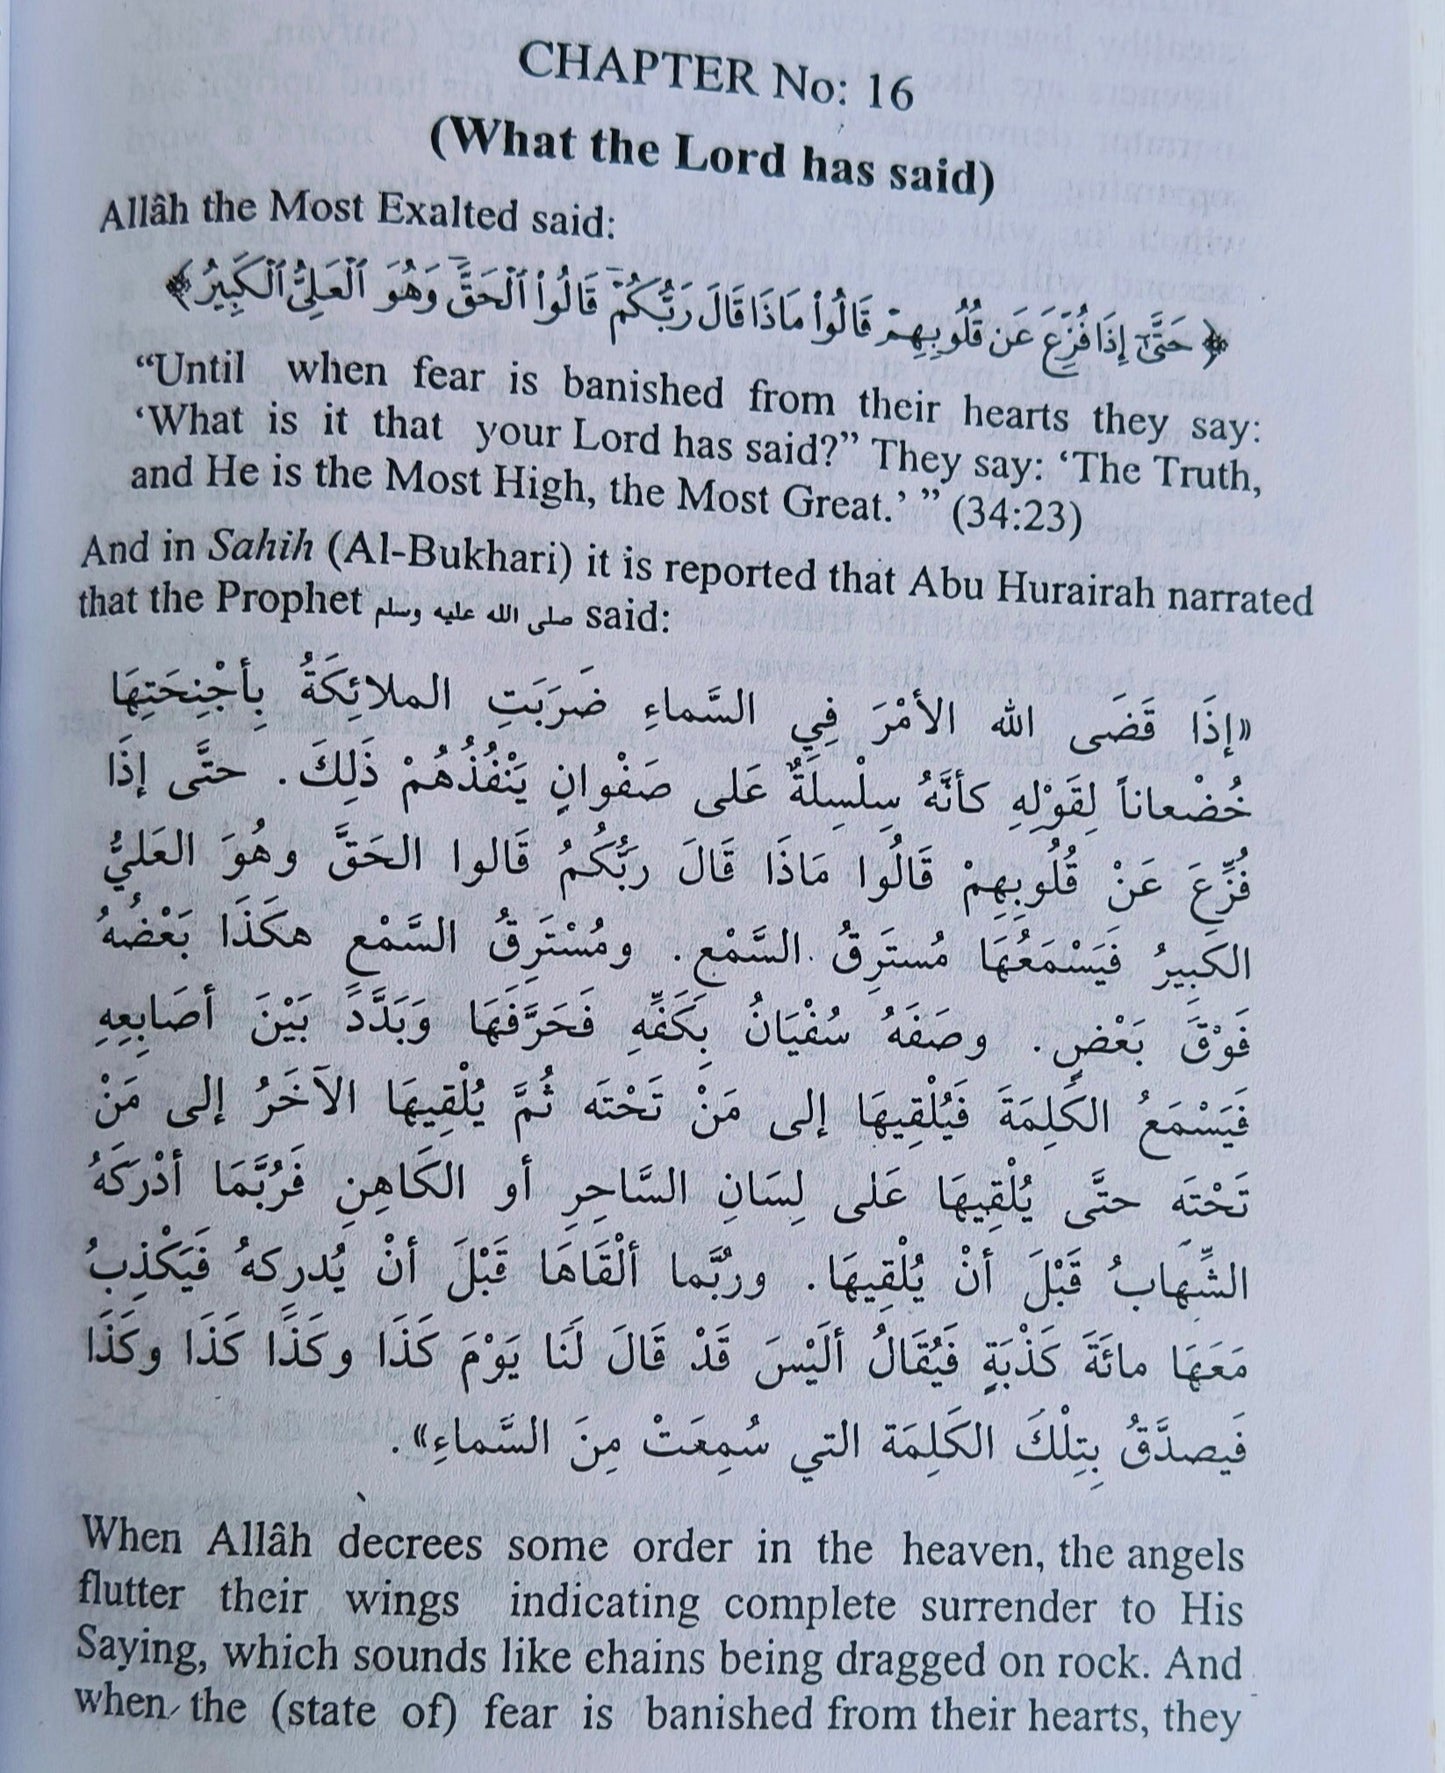 CHAPTER No: 16
(What the Lord has said)
Allâh the Most Exalted said:
﴿حَتَّىٰٓ إِذَا فُزِّعَ عَن قُلُوبِهِمْ قَالُوا۟ مَاذَا قَالَ رَبُّكُمْ ۖ قَالُوا۟ ٱلْحَقَّ ۖ وَهُوَ ٱلْعَلِىُّ ٱلْكَبِيرُ﴾
“Until when fear is banished from their hearts they say:
‘What is it that your Lord has said?” They say: ‘The Truth,
and He is the Most High, the Most Great.’ ” (34:23)
And in Sahih (Al-Bukhari) it is reported that Abu Hurairah narrated
that the Prophet صلى الله عليه وسلم said:
«إذَا قَضَى الله الأمْرَ فِي السَّماءِ ضَرَبَتِ الملائِكَةُ بِأجْنِحَتِهَا
خُضْعاناً لِقَوْلِهِ كأنَّهُ سِلْسِلَةٌ عَلى صَفْوانٍ يَنْفُذُهُمْ ذَلِكَ. حتَّى إذَا
فُزِّعَ عَنْ قُلُوبِهِمْ قَالُوا مَاذَا قَالَ ربُّكُمُ قَالوا الحَقَّ وهُوَ العَليُّ
الكَبِيرُ فَيَسْمَعُهَا مُستَرِقُ السَّمْعِ. ومُسْتَرِقُ السَّمْعِ هكَذَا بَعْضُهُ
فَوْقَ بَعْضٍ. وصَفَهُ سُفْيَانُ بِكَفِّهِ فَحَرَّفَهَا وَبَدَّدَ بَيْنَ أصَابِعِهِ
فَيَسْمَعُ الكَلِمَةَ فَيُلْقِيهَا إلى مَنْ تَحْتَه ثُمَّ يُلْقِيهَا الآخَرُ إلى مَنْ
تَحْتَه حتَّى يُلْقِيهَا عَلى لِسَانِ السَّاحِرِ أو الكَاهِنِ فَرُبَّمَا أدْرَكَهُ
الشِّهابُ قَبْلَ أنْ يُلْقِيهَا. وربُّما ألْقَاهَا قَبْلَ أنْ يُدركهُ فَيَكْذِبُ
مَعَهَا مائَةَ كَذْبَةٍ فَيُقَالُ ألَيْسَ قَدْ قَالَ لَنَا يَوْمَ كَذَا وكَذَا كَذَا وكَذَا
فَيصدَّقُ بِتِلْكَ الكَلِمَة التي سُمِعَتْ مِنَ السَّماءِ».
When Allâh decrees some order in the heaven, the angels
flutter their wings indicating complete surrender to His
Saying, which sounds like chains being dragged on rock. And
when the (state of) fear is banished from their hearts, they